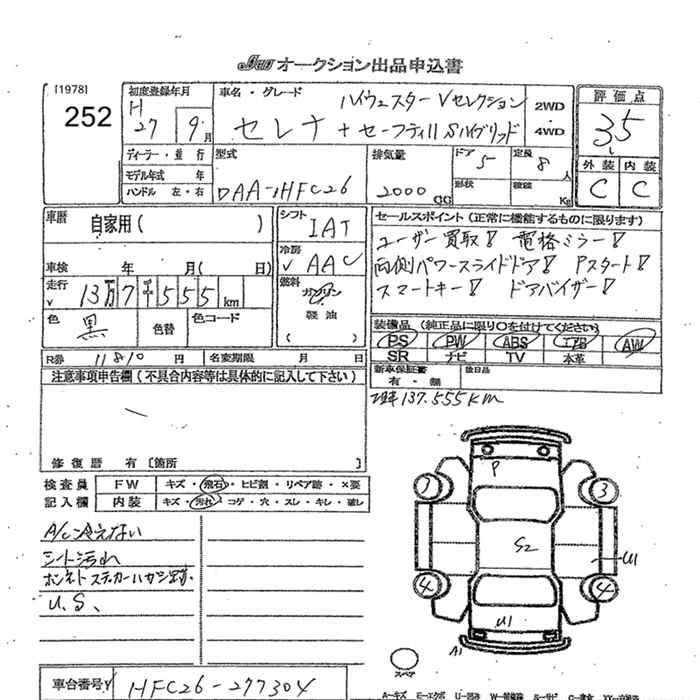 オークション出品申込書
[1978]
252
初度登録年月
H
27 9月
車名・グレード
ハイウェスターVセレクション
セレナ +セーフティII Sハイブリッド
2WD
4WD
評価点
3.5
外装 内装
C C
ディーラー・並行
モデル年式 年
ハンドル 左・右
型式
DAA-HFC26
排気量
2000
CC
ドア 5
形状
定員 8人
積載 Kg
車歴
自家用( )
車検 年 月( 日)
走行
v 13万7千555km
色 黒
色替
色コード
シフト
IAT
冷房
v AAC
燃料
ガソリン
軽油
セールスポイント(正常に機能するものに限ります)
ユーザー買取!! 電格ミラー!!
両側パワースライドドア!! Pスタート!!
スマートキー!! ドアバイザー!!
装備品(純正品に限り○を付けてください)
PS PW ABS エアB AW
SR ナビ TV 本革
R券 11810円
名変期限 月 日
新車保証書
有・無
後日品
注意事項申告欄(不具合内容等は具体的に記入して下さい)
修復歴 有〔箇所
現車137.555km
検査員
記入欄
FW キズ・飛石・ヒビ割・リペア跡・×要
内装 キズ・汚れ・コゲ・穴・スレ・キレ・破レ
A/C冷えない
シート汚れ
ボンネットステッカーハガシ跡.
U.S、
P
3
3
S2
U1
4
4
U1
A1
スペア
車台番号
HFC26-277304
A-キズ E-エクボ U-凹み W-補修跡 S-サビ C-腐食